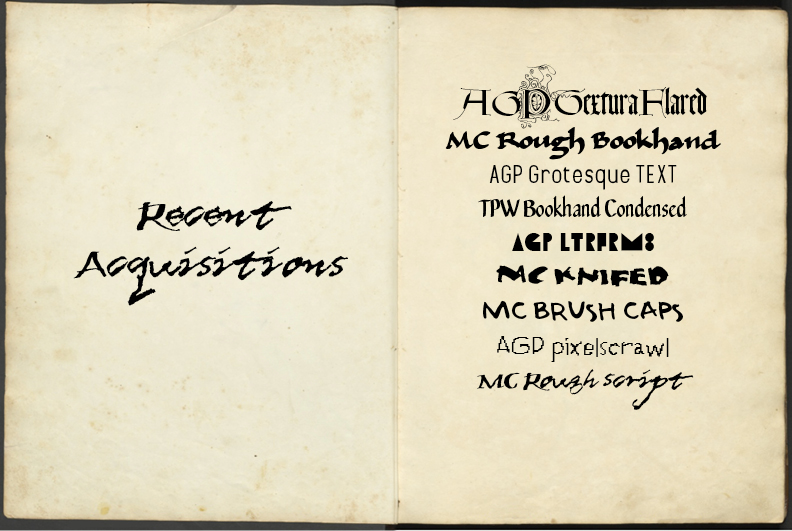 Recent
Acquisitions
AGD Textura Flared
MC Rough Bookhand
AGP Grotesque TEXT
TPW Bookhand Condensed
AGP LTRFRM8
MC KNIFED
MC BRUSH CAPS
AGD pixelscrawl
MC Rough script